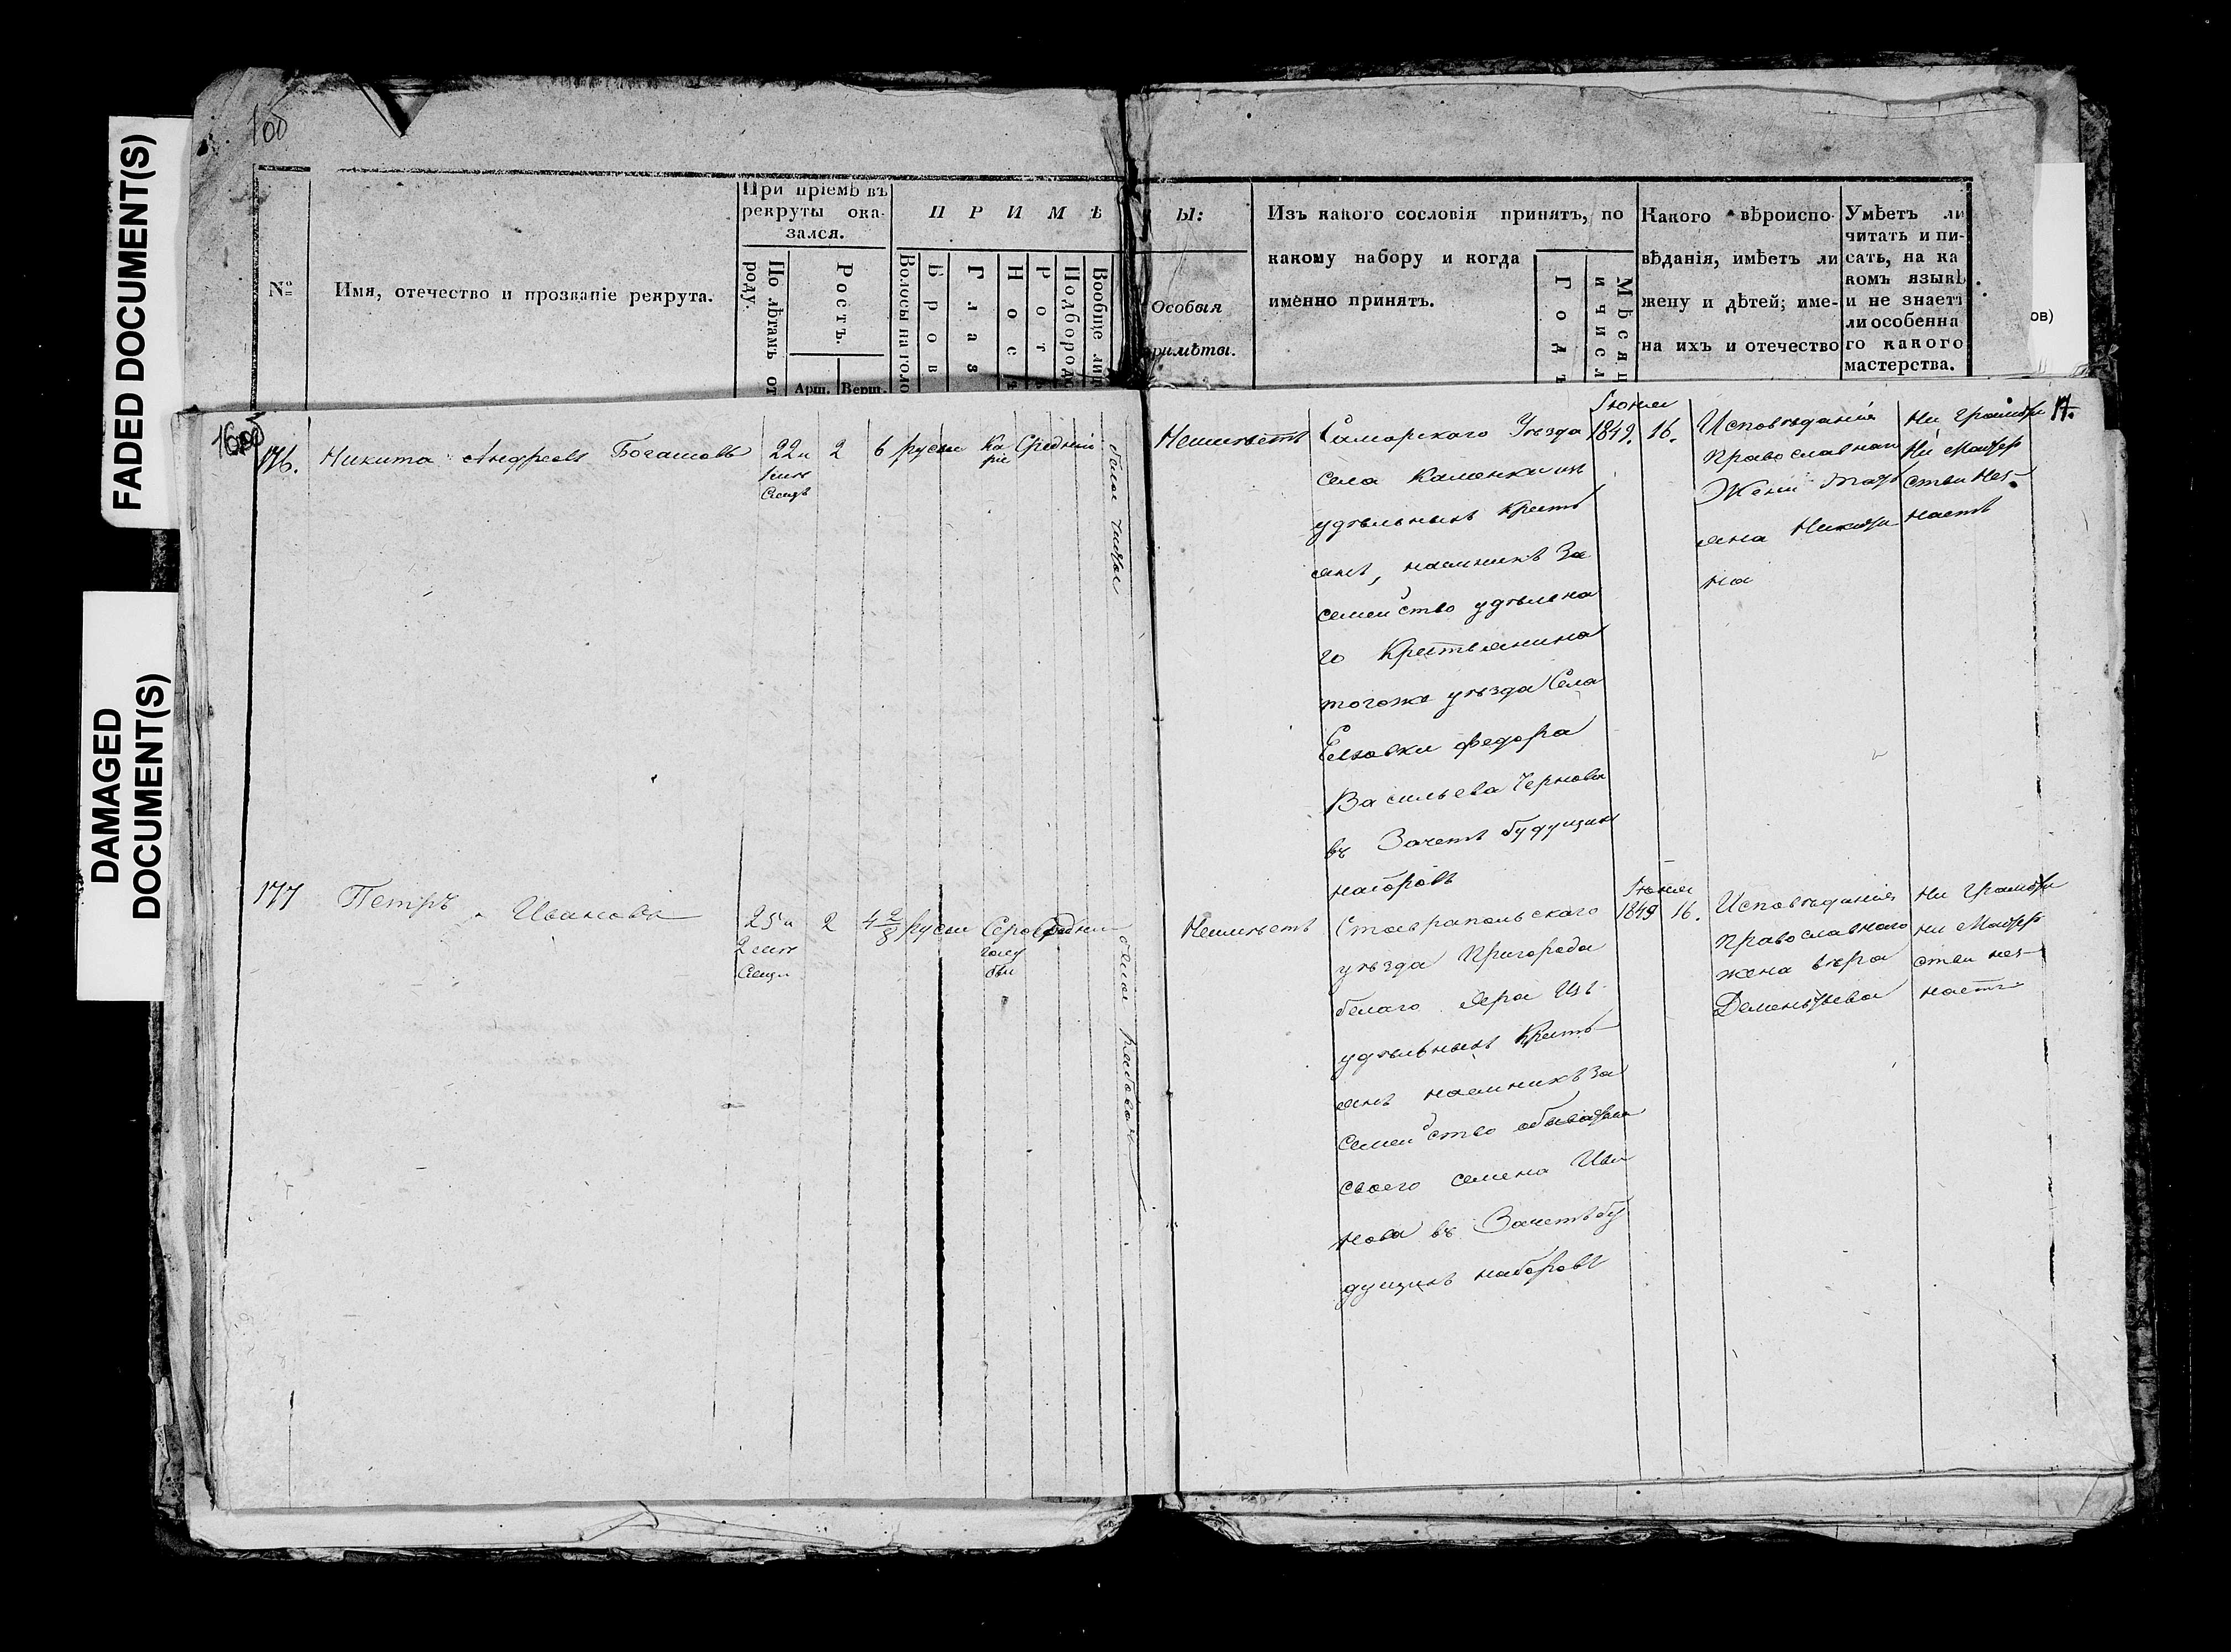 FADED DOCUMENT(S)
DAMAGED
DOCUMENT(S)
100
№
Имя, отечество и прозваніе рекрута.
При пріемѣ въ
рекруты ока-
зался.
По лѣтамъ от
роду.
Ростъ.
Арш.
Верш.
ПРИМѢ
Волосы на голо
Бров
Глаз
Нос
Рот
Подбородо
Вообще лиц
Ы:
Особыя
римѣты.
Изъ какого сословія принятъ, по
какому набору и когда
именно принятъ.
Годъ
Мѣсяц
и числ
Какого вѣроиспо-
вѣданія, имѣетъ ли
жену и дѣтей; име-
на ихъ и отечество
Умѣетъ ли
читать и пи-
сать, на ка
комъ языкѣ
и не знаетъ
ли особенна
го какого
мастерства.
ов)
176.
Никита Андреевъ Богашовъ
22 и
2
6
русы
Ка
рие
Средній
бело чистое
Неимѣетъ
Самарскаго Уѣзда
села Каменки изъ
удѣльныхъ крестъ
янъ, наемникъ За
семейство удѣльна
го Крестьянина
тогоже уѣзда Села
федора
Васильева Чернова
въ Зачетъ будущихъ
наборовъ
Іюня
1849. 16.
Исповѣданія
православнаго
Жена Тать
яна Никити
на
Ни Грамоты
Ни Мастер
ства Нез-
наетъ
177
Петръ Ивановъ
25 и
2
4 2/8
русы
Серо
голу
бые
Средній
белое рябоват
Неимѣетъ
Ставрапольскаго
уѣзда Пригорода
белаго Яра Изъ
удѣльныхъ Крестъ
янъ наемникъ За
Семейство
своего семена Ива
нова въ Зачетъ бу
дущихъ наборовъ
Іюня
1849 16.
Исповѣданія
православнаго
жена вѣра
Дементьева
Ни Грамоты
ни Мастер
ства нез-
наетъ